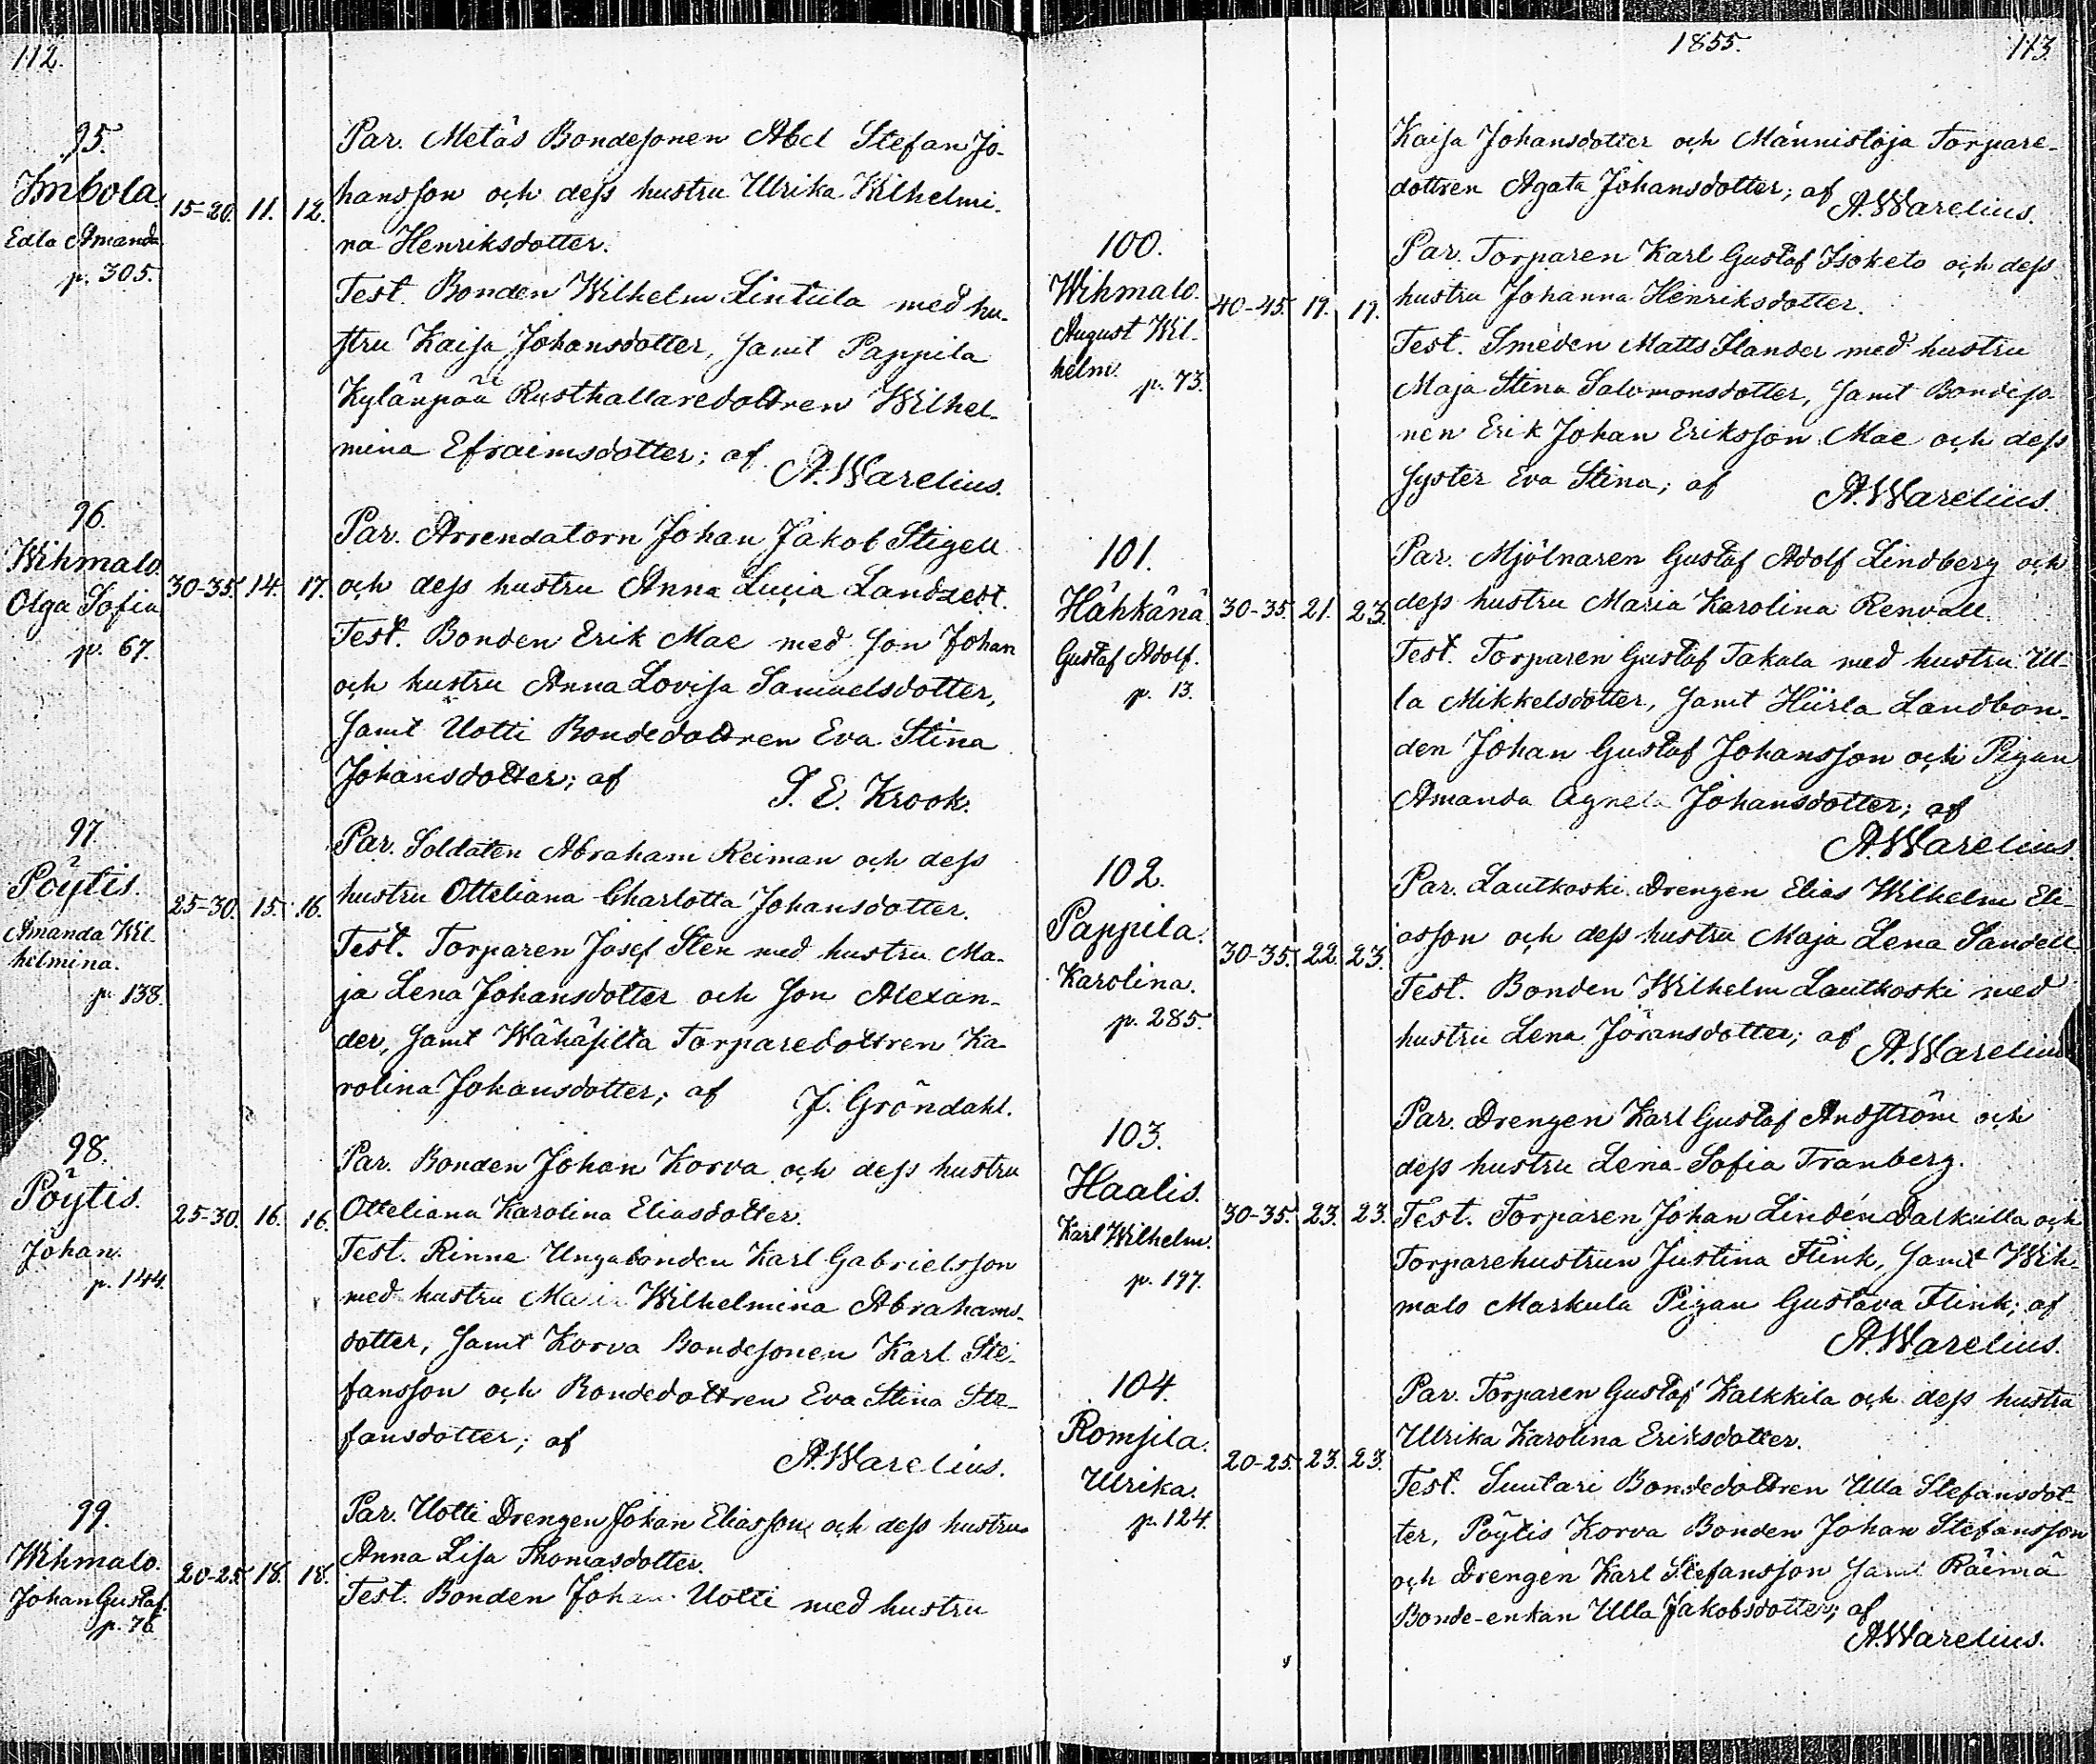 112.
95.
Imbola.
Edla Amanda
p. 305.
15-20. 11. 12.
Par. Metäs Bondesonen Abel Stefan Jo-
hansson och dess hustru Ulrika Wilhelmi-
na Henriksdotter.
Test. Bonden Wilhelm Lintula med hu-
stru Kaisa Johansdotter, samt Pappila
Kylänpää Rusthallaredottren Wilhel-
mina Efraimsdotter; af
A. Warelius.
96.
Wihmalo.
Olga Sofia
p. 67.
30-35. 14. 17.
Par. Arrendatorn Johan Jakob Stigell
och dess hustru Anna Lucia Landzett.
Test. Bonden Erik Mae med son Johan
och hustru Anna Lovisa Samuelsdotter,
samt Uotti Bondedottren Eva Stina
Johansdotter; af
S. E. Krook.
97.
Pöytis.
Amanda Wil-
helmina.
p. 138.
25-30. 15. 16.
Par. Soldaten Abraham Reiman och dess
hustru Otteliana Charlotta Johansdotter.
Test. Torparen Josef Sten med hustru Ma-
ja Lena Johansdotter och son Alexan-
der, samt Wähäsilta Torparedottren Ka-
rolina Johansdotter; af
J. Gröndahl.
98.
Pöytis.
Johan.
p. 144.
25-30. 16. 16.
Par. Bonden Johan Korva och dess hustru
Otteliana Karolina Eliasdotter.
Test. Rinne Ungabonden Karl Gabrielsson
med hustru Maria Wilhelmina Abrahams-
dotter, samt Korva Bondesonen Karl Ste-
fansson och Bondedottren Eva Stina Ste-
fansdotter; af
A. Warelius.
99.
Wihmalo.
Johan Gustaf.
p. 76.
20-25. 18. 18.
Par. Uotti Drengen Johan Eliasson och dess hustru
Anna Lisa Thomasdotter.
Test. Bonden Johan Uotti med hustru
1855. 113.
Kaisa Johansdotter och Männistöja Torpare-
dottren Agata Johansdotter; af
A. Warelius.
100.
Wihmalo.
August Wil-
helm.
p. 73.
40-45. 19. 19.
Par. Torparen Karl Gustaf Isoketo och dess
hustru Johanna Henriksdotter.
Test. Smeden Matts Ilander med hustru
Maja Stina Salomonsdotter, samt Bondeso-
nen Erik Johan Eriksson Mae och dess
syster Eva Stina; af
A. Warelius.
101.
Hähkänä
Gustaf Adolf.
p. 13.
30-35. 21. 23.
Par. Mjölnaren Gustaf Adolf Lindberg och
dess hustru Maria Karolina Renvall.
Test. Torparen Gustaf Takala med hustru Ul-
la Mikkelsdotter, samt Hiirla Landbon-
den Johan Gustaf Johansson och Pigan
Amanda Agneta Johansdotter; af
A. Warelius.
102.
Pappila.
Karolina.
p. 285.
30-35. 22. 23.
Par. Lautkoski Drengen Elias Wilhelm Eli-
asson och dess hustru Maja Lena Sandell
Test. Bonden Wilhelm Lautkoski med
hustru Lena Jöransdotter; af
A. Warelius
103.
Haalis.
Karl Wilhelm.
p. 197.
30-35. 23. 23.
Par. Drengen Karl Gustaf Andström och
dess hustru Lena Sofia Tranberg.
Test. Torparen Johan Lindén Dalkulla och
Torparehustrun Justina Flink, samt Wih-
malo Markula Pigan Gustava Flink; af
A. Warelius.
104.
Romsila.
Ulrika.
p. 124.
20-25. 23. 23.
Par. Torparen Gustaf Kalkkila och dess hustru
Ulrika Karolina Eriksdotter.
Test. Suutari Bondedottren Ulla Stefansdot-
ter, Pöytis Korva Bonden Johan Stefansson
och Drengen Karl Stefansson samt Räimä
Bonde-enkan Ulla Jakobsdotter; af
A. Warelius.